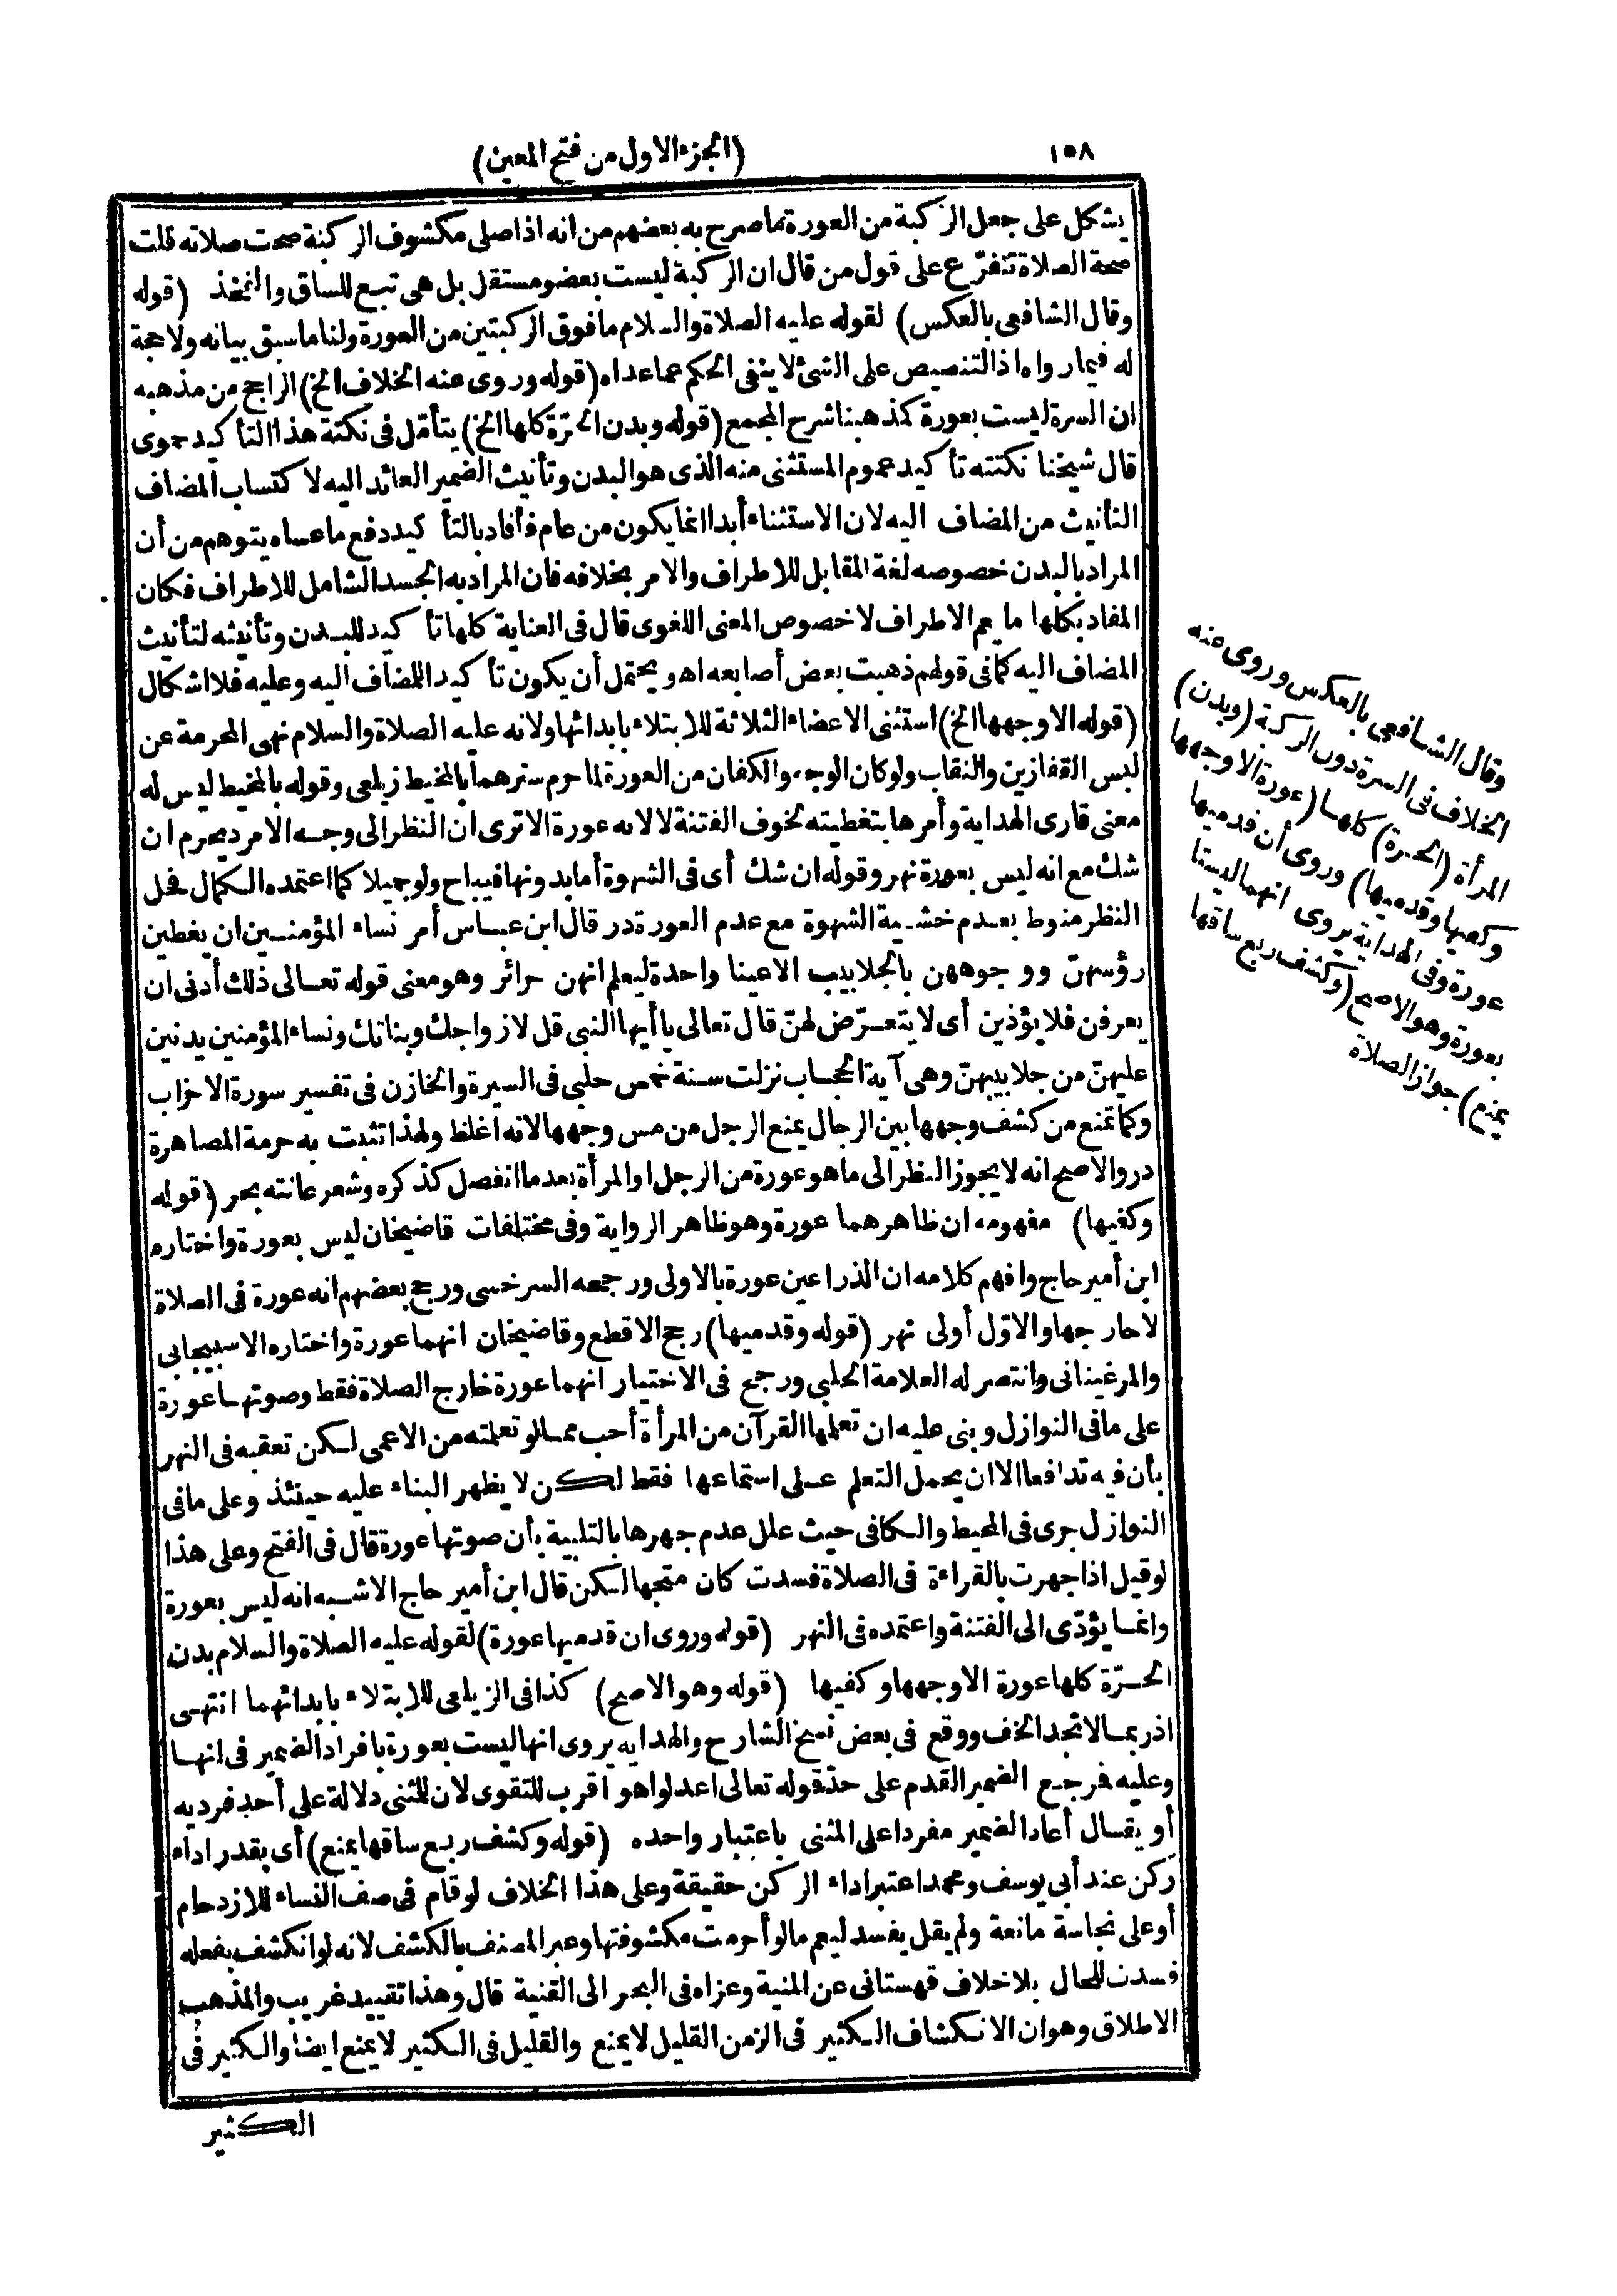 ١٥٨
(الجزء الاول من فتح المعين)
يشكل على جعل الركبة من العورة ما صرح به بعضهم من انه اذا صلى مكشوف الركبة صحت صلاته قلت
صحة الصلاة تتفرّع على قول من قال ان الركبة ليست بعضو مستقل بل هى تبع للساق والفخذ (قوله
وقال الشافعى بالعكس) لقوله عليه الصلاة والسلام ما فوق الركبتين من العورة ولنا ما سبق بيانه ولا حجة
له فيما رواه اذ التنصيص على الشئ لا ينفى الحكم عما عداه (قوله وروى عنه الخلاف الخ) الراجح من مذهبه
ان السرة ليست بعورة كمذهبنا شرح المجمع (قوله وبدن الحرّة كلها الخ) يتأمّل فى نكتة هذا التأكيد حموى
قال شيخنا نكتته تأكيد عموم المستثنى منه الذى هو البدن وتأنيث الضمير العائد اليه لاكتساب المضاف
التأنيث من المضاف اليه لان الاستثناء أبدا انما يكون من عام فأفاد بالتأكيد دفع ما عساه يتوهم من أن
المراد بالبدن خصوصه لغة المقابل للاطراف والامر بخلافه فان المراد به الجسد الشامل للاطراف فكان
المفاد بكلها ما يعم الاطراف لا خصوص المعنى اللغوى قال فى العناية كلها تأكيد للبدن وتأنيثه لتأنيث
المضاف اليه كما فى قولهم ذهبت بعض أصابعه اه ويحتمل أن يكون تأكيدا للمضاف اليه وعليه فلا اشكال
(قوله الا وجهها الخ) استثنى الاعضاء الثلاثة للابتلاء بابدائها ولانه عليه الصلاة والسلام نهى المحرمة عن
لبس القفازين والنقاب ولو كان الوجه والكفان من العورة لما حرم سترهما بالمخيط زيلعى وقوله بالمخيط ليس له
معنى قارى الهداية وأمرها بتغطيته لخوف الفتنة لا لانه عورة الا ترى ان النظر الى وجه الامرد يحرم ان
شك مع انه ليس بعورة نهر وقوله ان شك أى فى الشهوة أما بدونها فيباح ولو جميلا كما اعتمده الكمال فحل
النظر منوط بعدم خشية الشهوة مع عدم العورة در قال ابن عباس أمر نساء المؤمنين ان يغطين
رؤسهنّ ووجوههن بالجلابيب الا عينا واحدة ليعلم انهن حرائر وهو معنى قوله تعالى ذلك أدنى ان
يعرفن فلا يؤذين أى لا يتعرّض لهنّ قال تعالى يا أيها النبى قل لازواجك وبناتك ونساء المؤمنين يدنين
عليهنّ من جلابيبهنّ وهى آية الحجاب نزلت سنة خمس حلبى فى السيرة والخازن فى تفسير سورة الاحزاب
وكما تمنع من كشف وجهها بين الرجال يمنع الرجل من مس وجهها لانه اغلظ ولهذا تثبت به حرمة المصاهرة
در والاصح انه لا يجوز النظر الى ما هو عورة من الرجل او المرأة بعد ما انفصل كذكره وشعر عانته بحر (قوله
وكفيها) مفهومه ان ظاهرهما عورة وهو ظاهر الرواية وفى مختلفات قاضيخان ليس بعورة واختاره
ابن أمير حاج وافهم كلامه ان الذراعين عورة بالاولى ورجحه السرخسى ورجح بعضهم انه عورة فى الصلاة
لا خارجها والاوّل أولى نهر (قوله وقدميها) رجح الاقطع وقاضيخان انهما عورة واختاره الاسبيجابى
والمرغينانى وانتصر له العلامة الحلبى ورجح فى الاختيار انهما عورة خارج الصلاة فقط وصوتها عورة
على ما فى النوازل وبنى عليه ان تعلمها القرآن من المرأة أحب مما لو تعلمته من الاعمى لكن تعقبه فى النهر
بأن فيه تدافعا الا ان يحمل التعلم على استماعها فقط لكن لا يظهر البناء عليه حينئذ وعلى ما فى
النوازل جرى فى المحيط والكافى حيث علل عدم جهرها بالتلبية بأن صوتها عورة قال فى الفتح وعلى هذا
لو قيل اذا جهرت بالقراءة فى الصلاة فسدت كان متجها لكن قال ابن أمير حاج الاشبه انه ليس بعورة
وانما يؤدّى الى الفتنة واعتمده فى النهر (قوله وروى ان قدميها عورة) لقوله عليه الصلاة والسلام بدن
الحرّة كلها عورة الا وجهها وكفيها (قوله وهو الاصح) كذا فى الزيلعى للابتلاء بابدائهما انتهى
اذ ربما لا تجد الخف ووقع فى بعض نسخ الشارح والهداية يروى انها ليست بعورة بافراد الضمير فى انها
وعليه فمرجع الضمير القدم على حدّ قوله تعالى اعدلوا هو اقرب للتقوى لان للمثنى دلالة على أحد فرديه
أو يقال أعاد الضمير مفردا على المثنى باعتبار واحده (قوله وكشف ربع ساقها يمنع) أى بقدر اداء
ركن عند أبى يوسف ومحمد اعتبر اداء الركن حقيقة وعلى هذا الخلاف لو قام فى صف النساء للازدحام
أو على نجاسة مانعة ولم يقل يفسد ليعم ما لو أحرمت مكشوفتها وعبر المصنف بالكشف لانه لو انكشف بفعله
فسدت للحال بلا خلاف قهستانى عن المنية وعزاه فى البحر الى القنية قال وهذا تقييد غريب والمذهب
الاطلاق وهو ان الانكشاف الكثير فى الزمن القليل لا يمنع والقليل فى الكثير لا يمنع ايضا والكثير فى
الكثير
وقال الشافعى بالعكس وروى عنه
الخلاف فى السرة دون الركبة (وبدن)
المرأة (الحرة) كلها (عورة الا وجهها
وكفيها وقدميها) وروى أن قدميها
عورة وفى الهداية يروى انهما ليستا
بعورة وهو الاصح (وكشف ربع ساقها
يمنع) جواز الصلاة